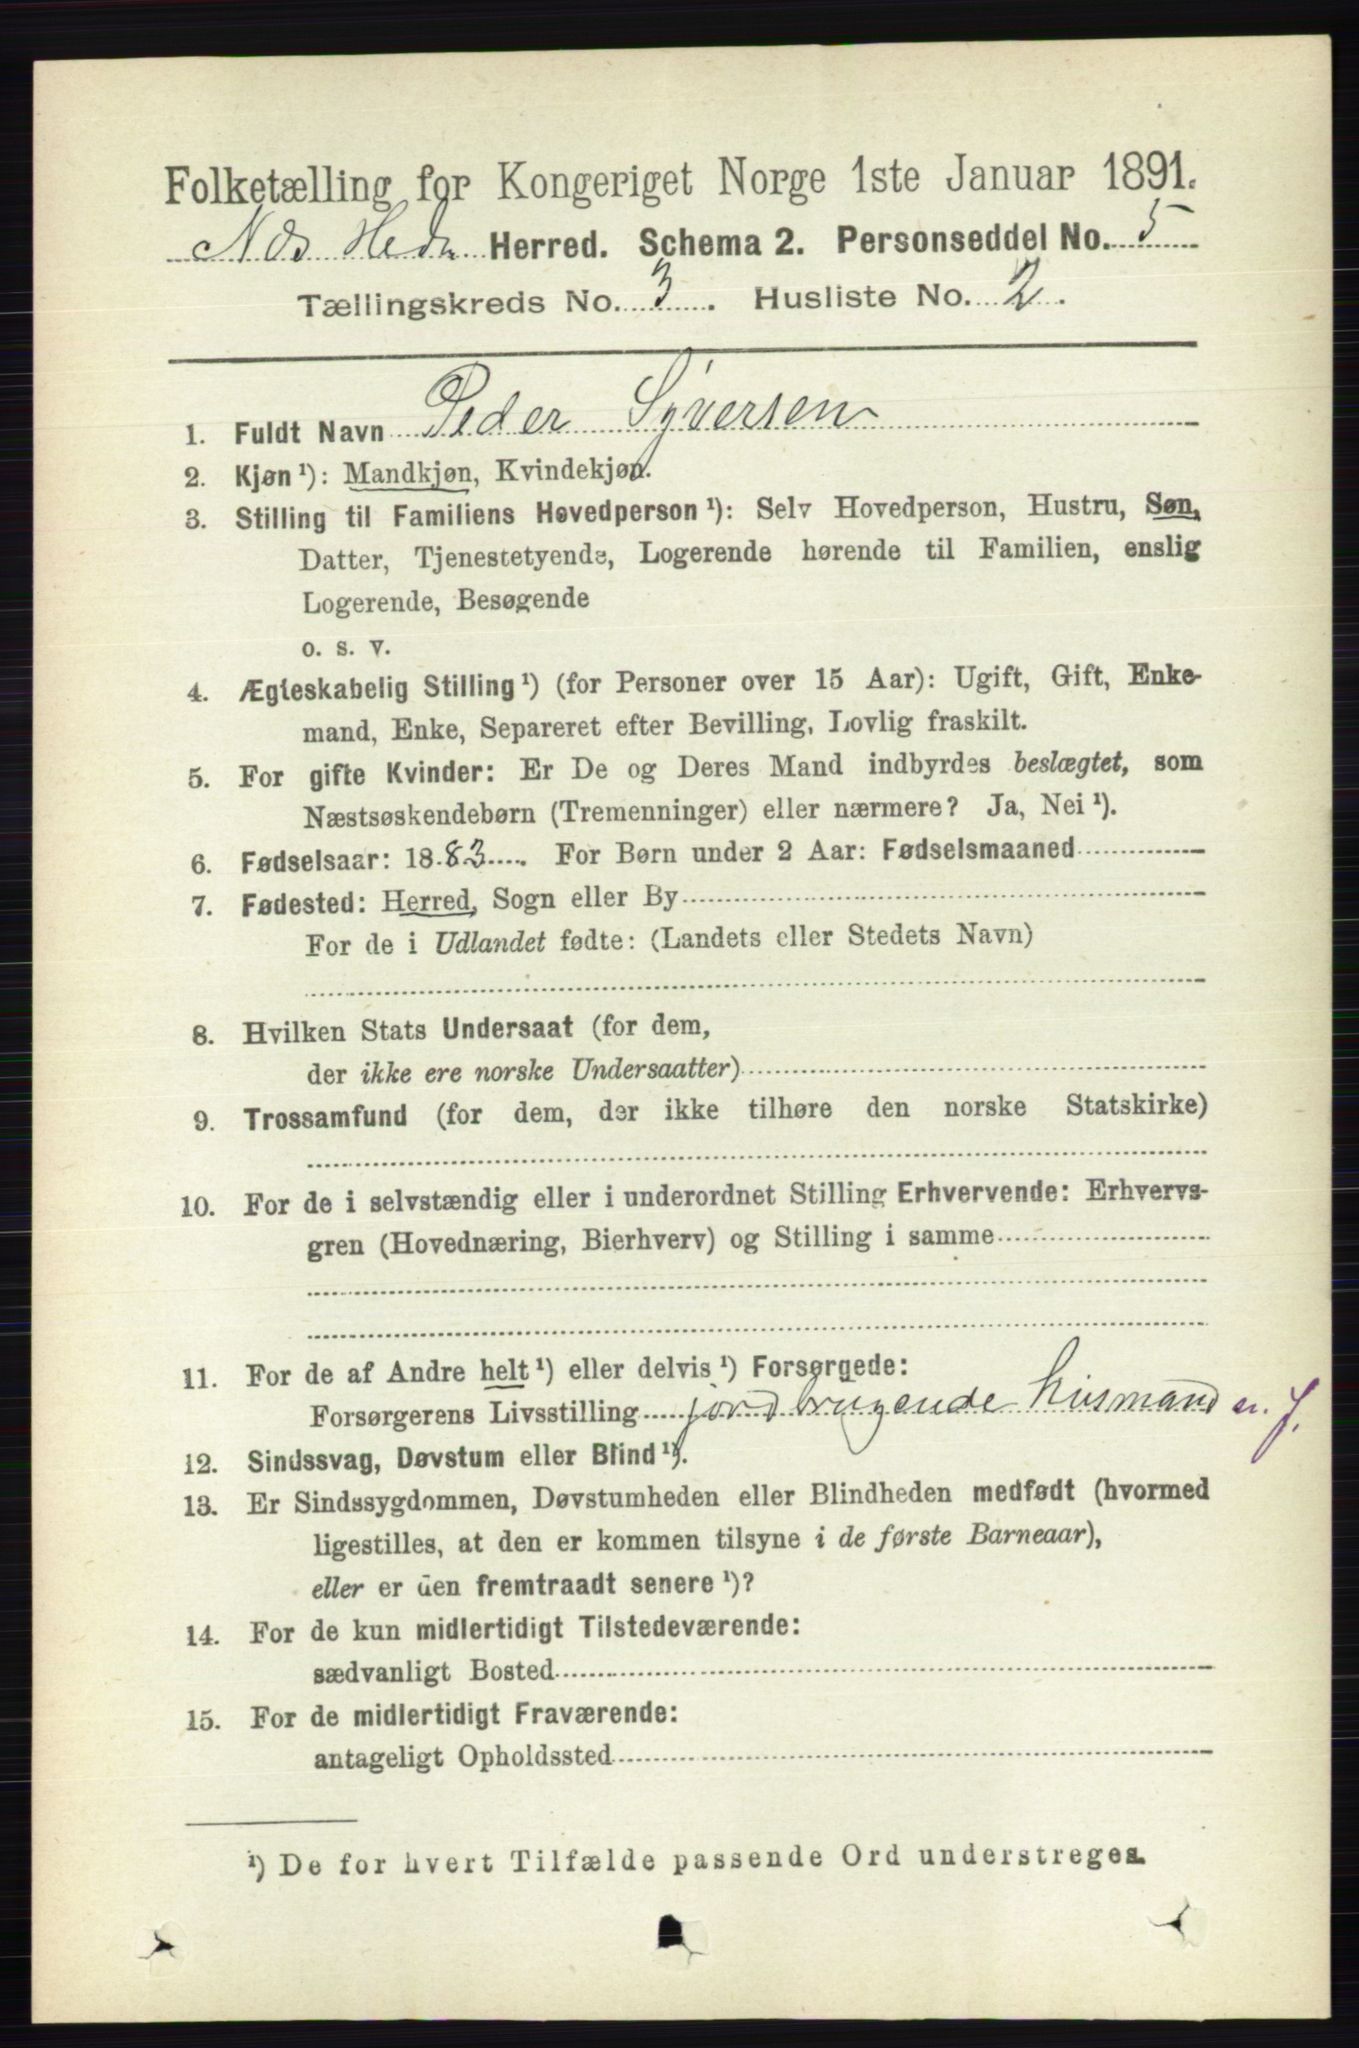 Folketælling for Kongeriget Norge 1ste Januar 1891.
Nes Hedm Herred. Schema 2. Personseddel No. 5
Tællingskreds No. 3. Husliste No. 2.
1. Fuldt Navn Peder Syversen
2. Kjøn ¹): Mandkjøn, Kvindekjøn.
3. Stilling til Familiens Hovedperson ¹): Selv Hovedperson, Hustru, Søn,
Datter, Tjenestetyende, Logerende hørende til Familien, enslig
Logerende, Besøgende
o. s. v.
4. Ægteskabelig Stilling ¹) (for Personer over 15 Aar): Ugift, Gift, Enke-
mand, Enke, Separeret efter Bevilling, Lovlig fraskilt.
5. For gifte Kvinder: Er De og Deres Mand indbyrdes beslægtet, som
Næstsøskendebørn (Tremenninger) eller nærmere? Ja, Nei ¹).
6. Fødselsaar: 1883. For Børn under 2 Aar: Fødselsmaaned
7. Fødested: Herred, Sogn eller By
For de i Udlandet fødte: (Landets eller Stedets Navn)
8. Hvilken Stats Undersaat (for dem,
der ikke ere norske Undersaatter)
9. Trossamfund (for dem, der ikke tilhøre den norske Statskirke)
10. For de i selvstændig eller i underordnet Stilling Erhvervende: Erhvervs-
gren (Hovednæring, Bierhverv) og Stilling i samme
11. For de af Andre helt ¹) eller delvis ¹) Forsørgede:
Forsørgerens Livsstilling jordbrugende Husmand m. J.
12. Sindssvag, Døvstum eller Blind ¹).
13. Er Sindssygdommen, Døvstumheden eller Blindheden medfødt (hvormed
ligestilles, at den er kommen tilsyne i de første Barneaar),
eller er den fremtraadt senere ¹)?
14. For de kun midlertidigt Tilstedeværende:
sædvanligt Bosted
15. For de midlertidigt Fraværende:
antageligt Opholdssted
¹) De for hvert Tilfælde passende Ord understreges.